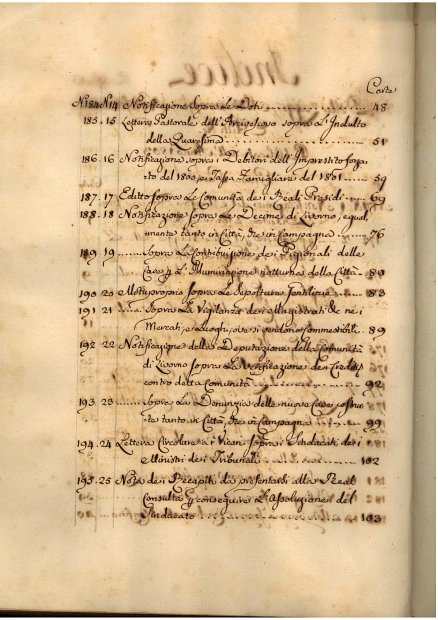 Indice
Carte
N.184. N.14. Notificazione sopra le Doti ........ 48
185. 15 Lettera Pastorale dell'Arcivescovo sopra l'Indulto
della Quaresima ........ 51
186. 16 Notificazione sopra i Debitori dell'Imprestito forza-
to del 1800 e Tassa Famigliare del 1801 ..... 59
187. 17 Editto sopra le Comunità dei Reali Presidi ... 69
188. 18 Notificazione sopra le Decime di Livorno, equal-
mente tanto in Città, che in Campagna ..... 76
189. 19 ....... Sopra la Contribuzione dei Pigionali delle
Case per l'Illuminazione notturna della Città .. 80
190. 20 Motuproprio sopra le Sepolture Gentilizie ..... 83
191. 21 ..... Sopra la Vigilanza dei Magistrati &c nei
Mercati, e Luoghi, ove si vendono Commestibili .. 89
192. 22 Notificazione della Deputazione della Comunità
di Livorno sopra la verificazione dei Crediti
contro detta Comunità ........ 92
193. 23 ..... Sopra la Denunzia delle nuove Case costrui-
te tanto in Città, che in Campagna ....... 99
194. 24 Lettera Circolare ai Vicari sopra i Sindacati dei
Ministri dei Tribunali ........ 102
195. 25 Nota dei Recapiti da presentarsi alla Real
Consulta per conseguire l'Assoluzione del
Sindacato ........ 103